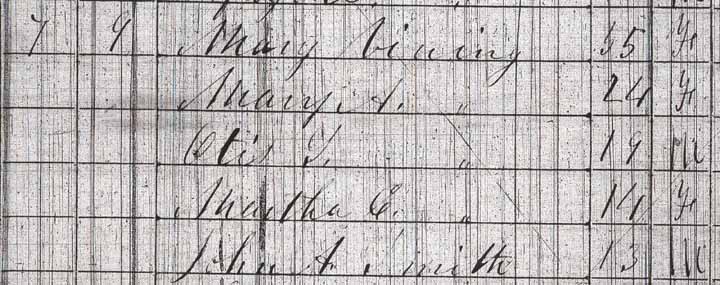 7 9 Mary Vining 55 F
Mary A. " 24 F
Otis L. " 19 M
Martha E. " 14 F
John A Smith 13 M